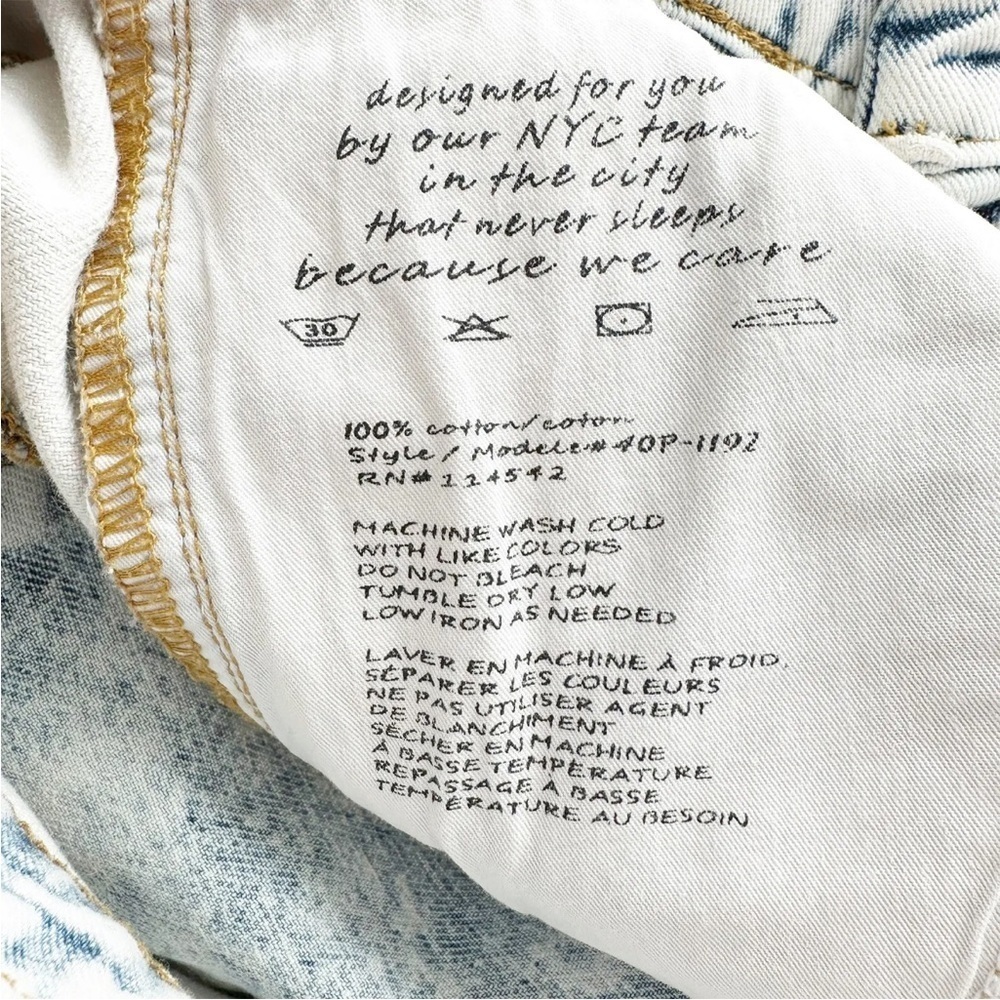 designed for you
by our NYC team
in the city
that never sleeps
because we care
30
100% cotton/coton
Style / Modele# 40P-1192
RN# 124542
MACHINE WASH COLD
WITH LIKE COLORS
DO NOT BLEACH
TUMBLE DRY LOW
LOW IRON AS NEEDED
LAVER EN MACHINE À FROID,
SÉPARER LES COULEURS
NE PAS UTILISER AGENT
DE BLANCHIMENT
SÉCHER EN MACHINE
À BASSE TEMPÉRATURE
REPASSAGE À BASSE
TEMPÉRATURE AU BESOIN